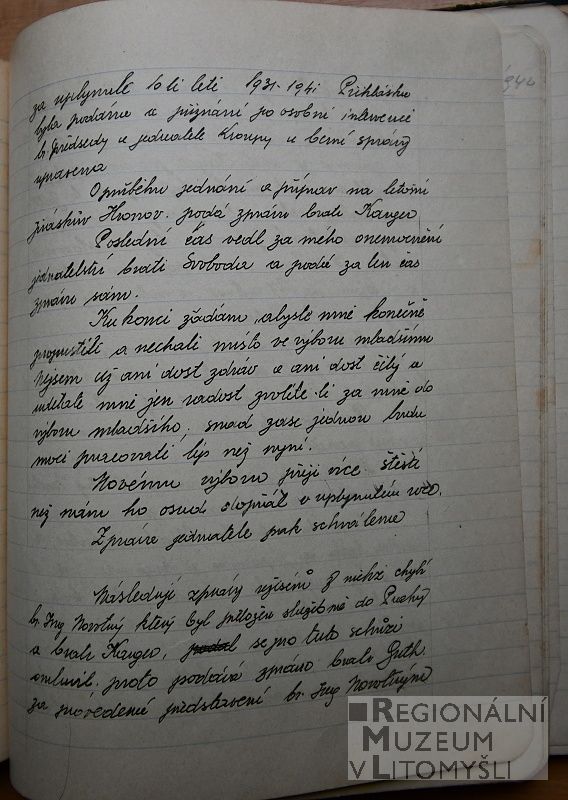 za uplynulé to li leti 1931-1941 Přihláška
byla podána a přiznání po osobní intervenci
br. předsedy a jednatele Kroupy u berní správy
upravena
O průběhu jednání a příprav na letošní
Jiráskův Hronov podá zprávu bratr Karger
Poslední čas vedl za mého onemocnění
jednatelství bratr Svoboda a podá za ten čas
zprávu sám.
Ku konci žádám, abyste mně konečně
propustili a nechali místo ve výboru mladšímu
Nejsem už ani dost zdráv a ani dost čilý a
uděláte mně jen radost zvolíte-li za mně do
výboru mladšího, snad zase jednou budu
moci pracovati líp než nyní.
Novému výboru přeji více štěstí
než mám ho osud dopřál v uplynulém roce.
Zpráva jednatele pak schválena
Následují zprávy režisérů z nichž chybí
br. Ing Novotný který byl přeložen služebně do Prahy
a bratr Karger, se pro tuto schůzi
omluvil, proto podává zprávu bratr Guth.
za provedené představení br. Ing Novotným
1940
REGIONÁLNÍ
MUZEUM
V LITOMYŠLI